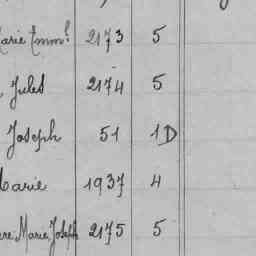 Marie Emm? 2173 5
, Jules 2174 5
Joseph 51 1D
Marie 1937 4
ere Marie Joseph 2175 5